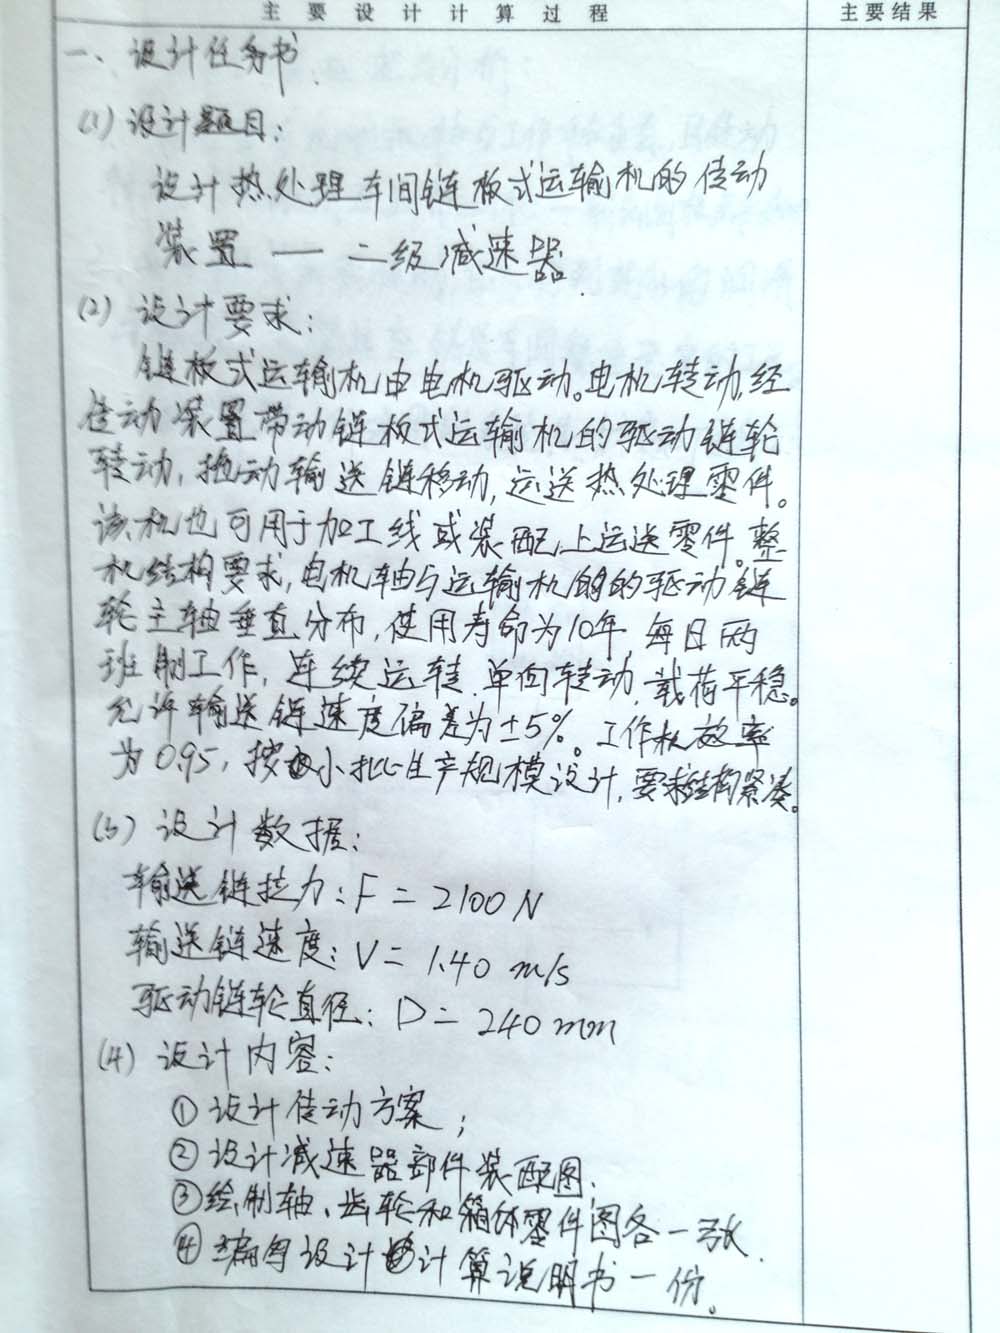 主要设计计算过程 主要结果
一、设计任务书
(1) 设计题目：
设计热处理车间链板式运输机的传动
装置 — 二级减速器.
(2) 设计要求：
链板式运输机由电机驱动。电机转动,经
传动装置带动链板式运输机的驱动链轮
转动, 拖动输送链移动, 运送热处理零件。
该机也可用于加工线或装配上运送零件。整
机结构要求, 电机轴与运输机的的驱动链
轮主轴垂直分布, 使用寿命为10年, 每日两
班制工作, 连续运转, 单向转动, 载荷平稳。
允许输送链速度偏差为±5%。工作机效率
为0.95, 按小批生产规模设计, 要求结构紧凑。
(3) 设计数据：
输送链拉力：F = 2100 N
输送链速度：V = 1.40 m/s
驱动链轮直径：D = 240 mm
(4) 设计内容：
① 设计传动方案；
② 设计减速器部件装配图.
③ 绘制轴、齿轮和箱体零件图各一张.
④ 编写设计计算说明书一份。